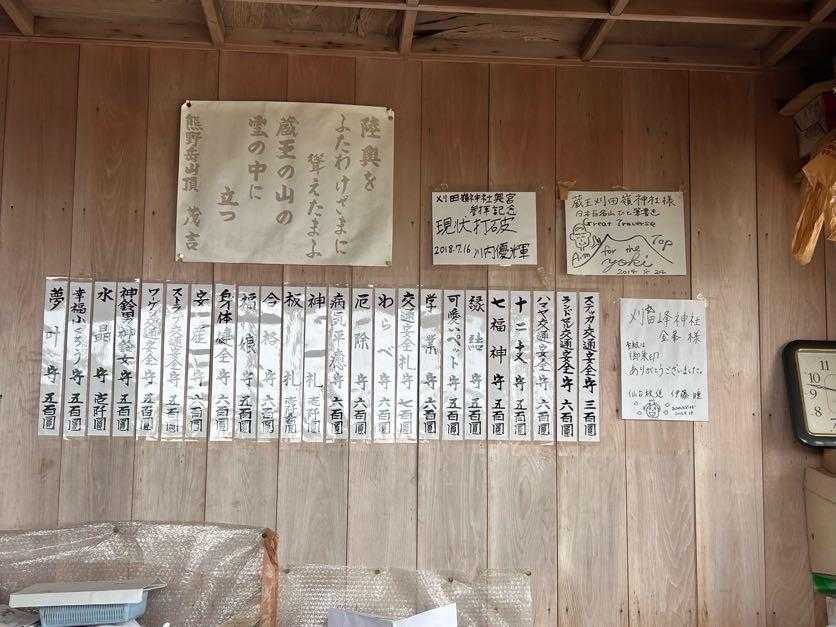 陸奥を
ふたわけざまに
聳えたまふ
蔵王の山の
雲の中に
立つ
熊野岳山頂 茂吉
刈田嶺神社奥宮
参拝記念
現状打破
2018.7.16 川内優輝
蔵王刈田嶺神社様
日本百名山ひと筆書き
Great Traverse
Aim for the Top
yoki
刈田峰神社
宮本 様
御朱印
ありがとうございました。
仙台放送 伊藤 瞳
ステッカ交通安全守 三百圓
ランドセル交通安全守 六百圓
ハマヤ交通安全守 六百圓
十二支守 五百圓
七福神守 五百圓
縁結守 五百圓
可愛いペット守 五百圓
学業守 六百圓
交通安全札守 七百圓
わらべ守 六百圓
厄除守 六百圓
病気平癒守 六百圓
神札 壱阡圓
板札 壱阡圓
合格守 六百圓
守 六百圓
身体健全守 六百圓
安産守 六百圓
交通安全守 五百圓
交通安全守 五百圓
守 五百圓
水晶守 壱阡圓
幸福ふくろう守 五百圓
夢叶守 五百圓
11
10
9
8
7